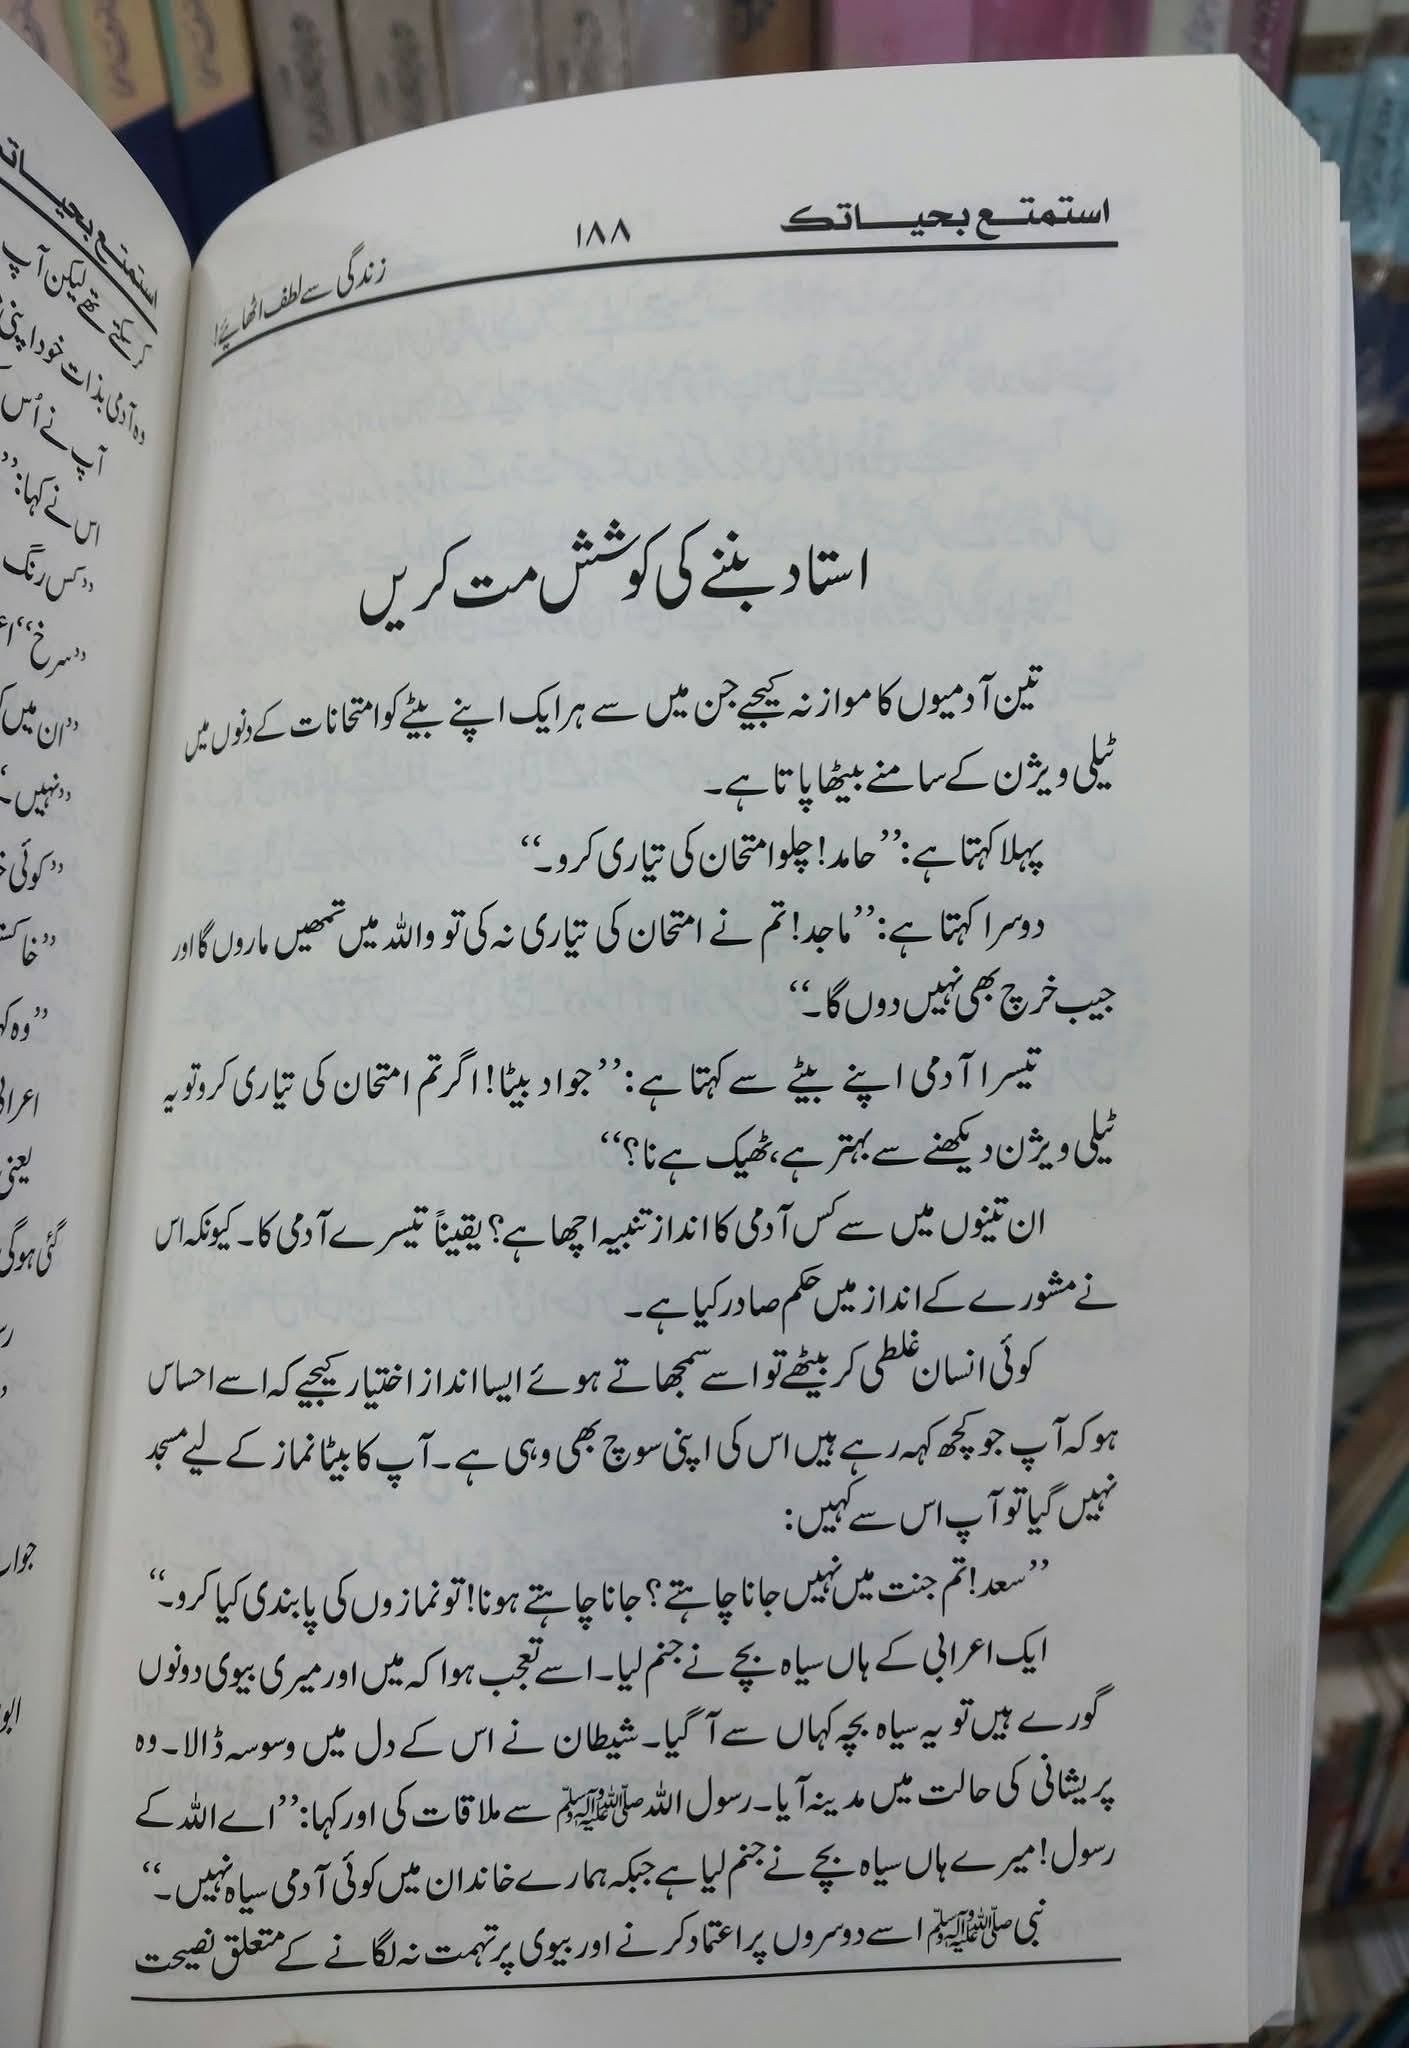 استمتع بحیاتک
۱۸۸
زندگی سے لطف اٹھائیے!
استاد بننے کی کوشش مت کریں
تین آدمیوں کا موازنہ کیجیے جن میں سے ہر ایک اپنے بیٹے کو امتحانات کے دنوں میں
ٹیلی ویژن کے سامنے بیٹھا پاتا ہے۔
پہلا کہتا ہے: ’’حامد! چلو امتحان کی تیاری کرو۔‘‘
دوسرا کہتا ہے: ’’ماجد! تم نے امتحان کی تیاری نہ کی تو واللہ میں تمھیں ماروں گا اور
جیب خرچ بھی نہیں دوں گا۔‘‘
تیسرا آدمی اپنے بیٹے سے کہتا ہے: ’’جواد بیٹا! اگر تم امتحان کی تیاری کرو تو یہ
ٹیلی ویژن دیکھنے سے بہتر ہے، ٹھیک ہے نا؟‘‘
ان تینوں میں سے کس آدمی کا انداز تنبیہ اچھا ہے؟ یقیناً تیسرے آدمی کا۔ کیونکہ اس
نے مشورے کے انداز میں حکم صادر کیا ہے۔
کوئی انسان غلطی کر بیٹھے تو اسے سمجھاتے ہوئے ایسا انداز اختیار کیجیے کہ اسے احساس
ہو کہ آپ جو کچھ کہہ رہے ہیں اس کی اپنی سوچ بھی وہی ہے۔ آپ کا بیٹا نماز کے لیے مسجد
نہیں گیا تو آپ اس سے کہیں:
’’سعد! تم جنت میں نہیں جانا چاہتے؟ جانا چاہتے ہو نا! تو نمازوں کی پابندی کیا کرو۔‘‘
ایک اعرابی کے ہاں سیاہ بچے نے جنم لیا۔ اسے تعجب ہوا کہ میں اور میری بیوی دونوں
گورے ہیں تو یہ سیاہ بچہ کہاں سے آ گیا۔ شیطان نے اس کے دل میں وسوسہ ڈالا۔ وہ
پریشانی کی حالت میں مدینہ آیا۔ رسول اللہ ﷺ سے ملاقات کی اور کہا: ’’اے اللہ کے
رسول! میرے ہاں سیاہ بچے نے جنم لیا ہے جبکہ ہمارے خاندان میں کوئی آدمی سیاہ نہیں۔‘‘
نبی ﷺ اسے دوسروں پر اعتماد کرنے اور بیوی پر تہمت نہ لگانے کے متعلق نصیحت
استمتع بحیات
کر سکتے تھے لیکن آپ
وہ آدمی بذات خود اپنی
آپ نے اُس
اس نے کہا: ’’
’’کس رنگ
’’سرخ‘‘
’’ان میں
’’نہیں۔
’’کوئی
’’وہ
یعنی
گئی ہوگی